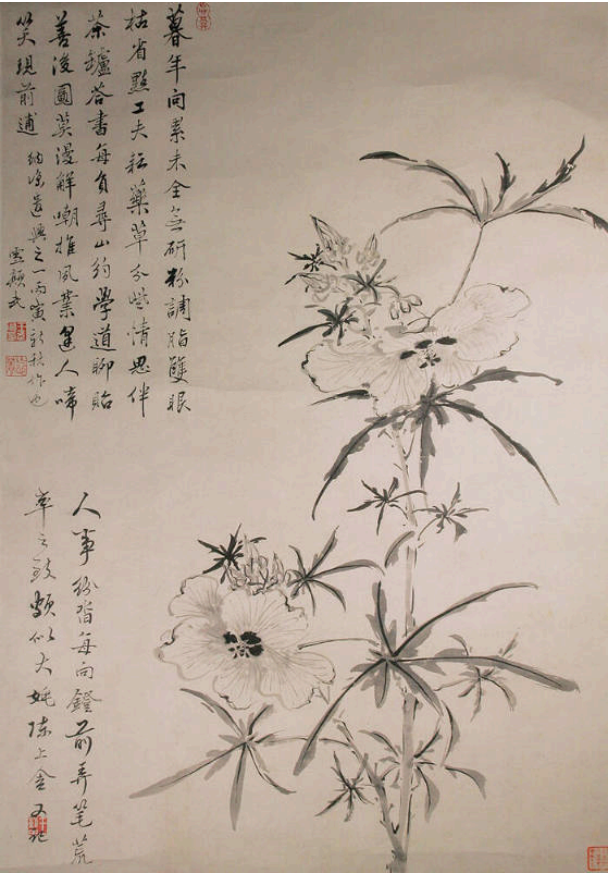 暮年向業未全無研粉調脂雙眼
枯省點工夫耘藥草分些情思伴
茶鑪答書每負尋山約學道聊貽
善沒圖莫漫解嘲推風業逢人啼
笑現前逋 納涼遣興之一丙寅新秋作也
雲顛
人事紛沓每向鐙前弄筆荒
率之致頗似大姚陳上舍 又記